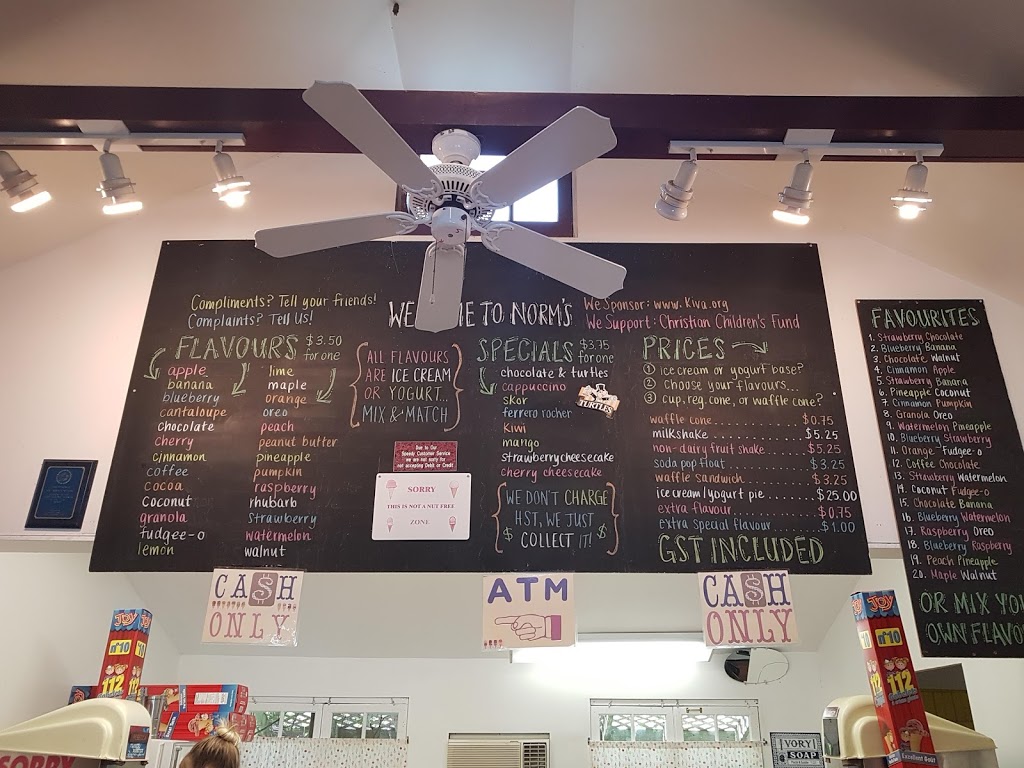 Compliments? Tell your friends!
Complaints? Tell Us!
WE ME TO NORM'S
We Sponsor: www. Kiva.org
We Support: Christian Children's Fund
FLAVOURS $3.50
for one
apple
banana
blueberry
cantaloupe
chocolate
cherry
cinnamon
coffee
cocoa
coconut
granola
fudgee-o
lemon
lime
maple
orange
oreo
peach
peanut butter
pineapple
pumpkin
raspberry
rhubarb
strawberry
watermelon
walnut
ALL FLAVOURS
ARE ICE CREAM
OR YOGURT...
MIX & MATCH
Due to the
Speedy Customer Service
we are not sorry for
not accepting Debit or Credit
SORRY
THIS IS NOT A NUT FREE
ZONE
SPECIALS $3.75
for one
chocolate & turtles
cappuccino
skor
ferrero rocher
Kiwi
mango
strawberry cheesecake
cherry cheesecake
TURTLES
WE DON'T CHARGE
HST, WE JUST
$ COLLECT IT! $
PRICES
1 ice cream or yogurt base?
2 choose your flavours...
3 cup, reg. cone, or waffle cone?
waffle cone............$0.75
milkshake..............$5.25
non-dairy fruit shake.....$5.25
soda pop float..........$3.25
waffle sandwich........$3.25
ice cream/yogurt pie......$25.00
extra flavour...........$0.75
extra special flavour.....$1.00
GST INCLUDED
FAVOURITES
1. Strawberry Chocolate
2. Blueberry Banana
3. Chocolate Walnut
4. Cinnamon Apple
5. Strawberry Banana
6. Pineapple Coconut
7. Cinnamon Pumpkin
8. Granola Oreo
9. Watermelon Pineapple
10. Blueberry Strawberry
11. Orange Fudgee-o
12. Coffee Chocolate
13. Strawberry Watermelon
14. Coconut Fudgee-o
15. Chocolate Banana
16. Blueberry Watermelon
17. Raspberry Oreo
18. Blueberry Raspberry
19. Peach Pineapple
20. Maple Walnut
OR MIX YO
OWN FLAVO
CA$H
ONLY
ATM
CA$H
ONLY
JOY
nº10
112
JOY
nº10
112
Excellent Goût
IVORY
SOAP
SORRY